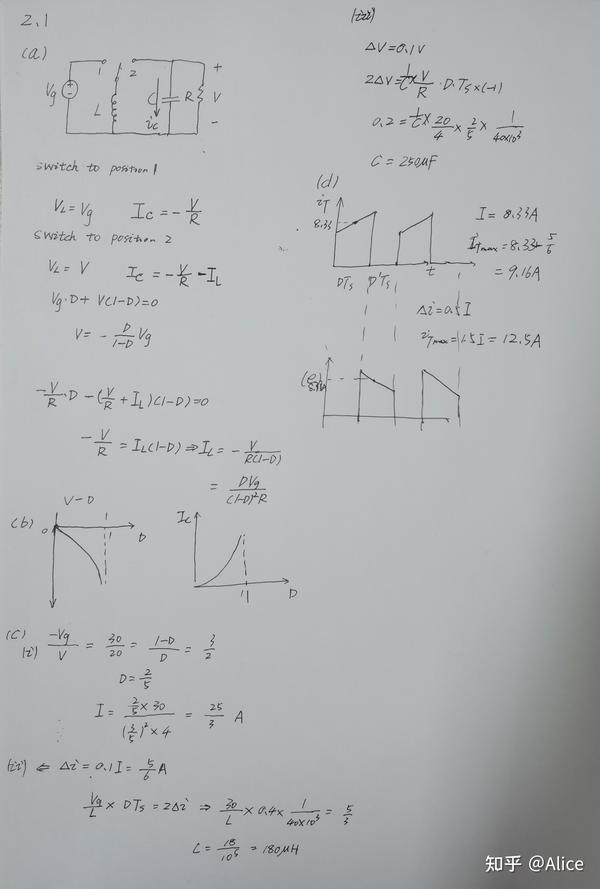 2.1
(a)
1 2 +
Vg L C R V
ic -
switch to position 1
VL = Vg Ic = -V/R
switch to position 2
VL = V Ic = -V/R - IL
Vg·D + V(1-D) = 0
V = -D/(1-D) Vg
-V/R·D - (V/R + IL)(1-D) = 0
-V/R = IL(1-D) ⇒ IL = -V/(R(1-D))
= DVg/((1-D)²R)
(b) V-D
0 1 D
Ic
1 D
(c)
(i) -Vg/V = 30/20 = (1-D)/D = 3/2
D = 2/5
I = (2/5 × 30)/((3/5)² × 4) = 25/3 A
(ii) ⇐ Δi = 0.1I = 5/6 A
Vg/L × DTs = 2Δi ⇒ 30/L × 0.4 × 1/(40×10³) = 5/3
L = 18/10⁵ = 180μH
(iii)
ΔV = 0.1V
2ΔV = 1/C × V/R · D·Ts × (-1)
0.2 = 1/C × 20/4 × 2/5 × 1/(40×10³)
C = 250μF
(d)
iT
8.33
DTs D'Ts t
I = 8.33A
iTmax = 8.33+ 5/6
= 9.16A
Δi = 0.5I
iTmax = 1.5I = 12.5A
(e)
知乎 @Alice